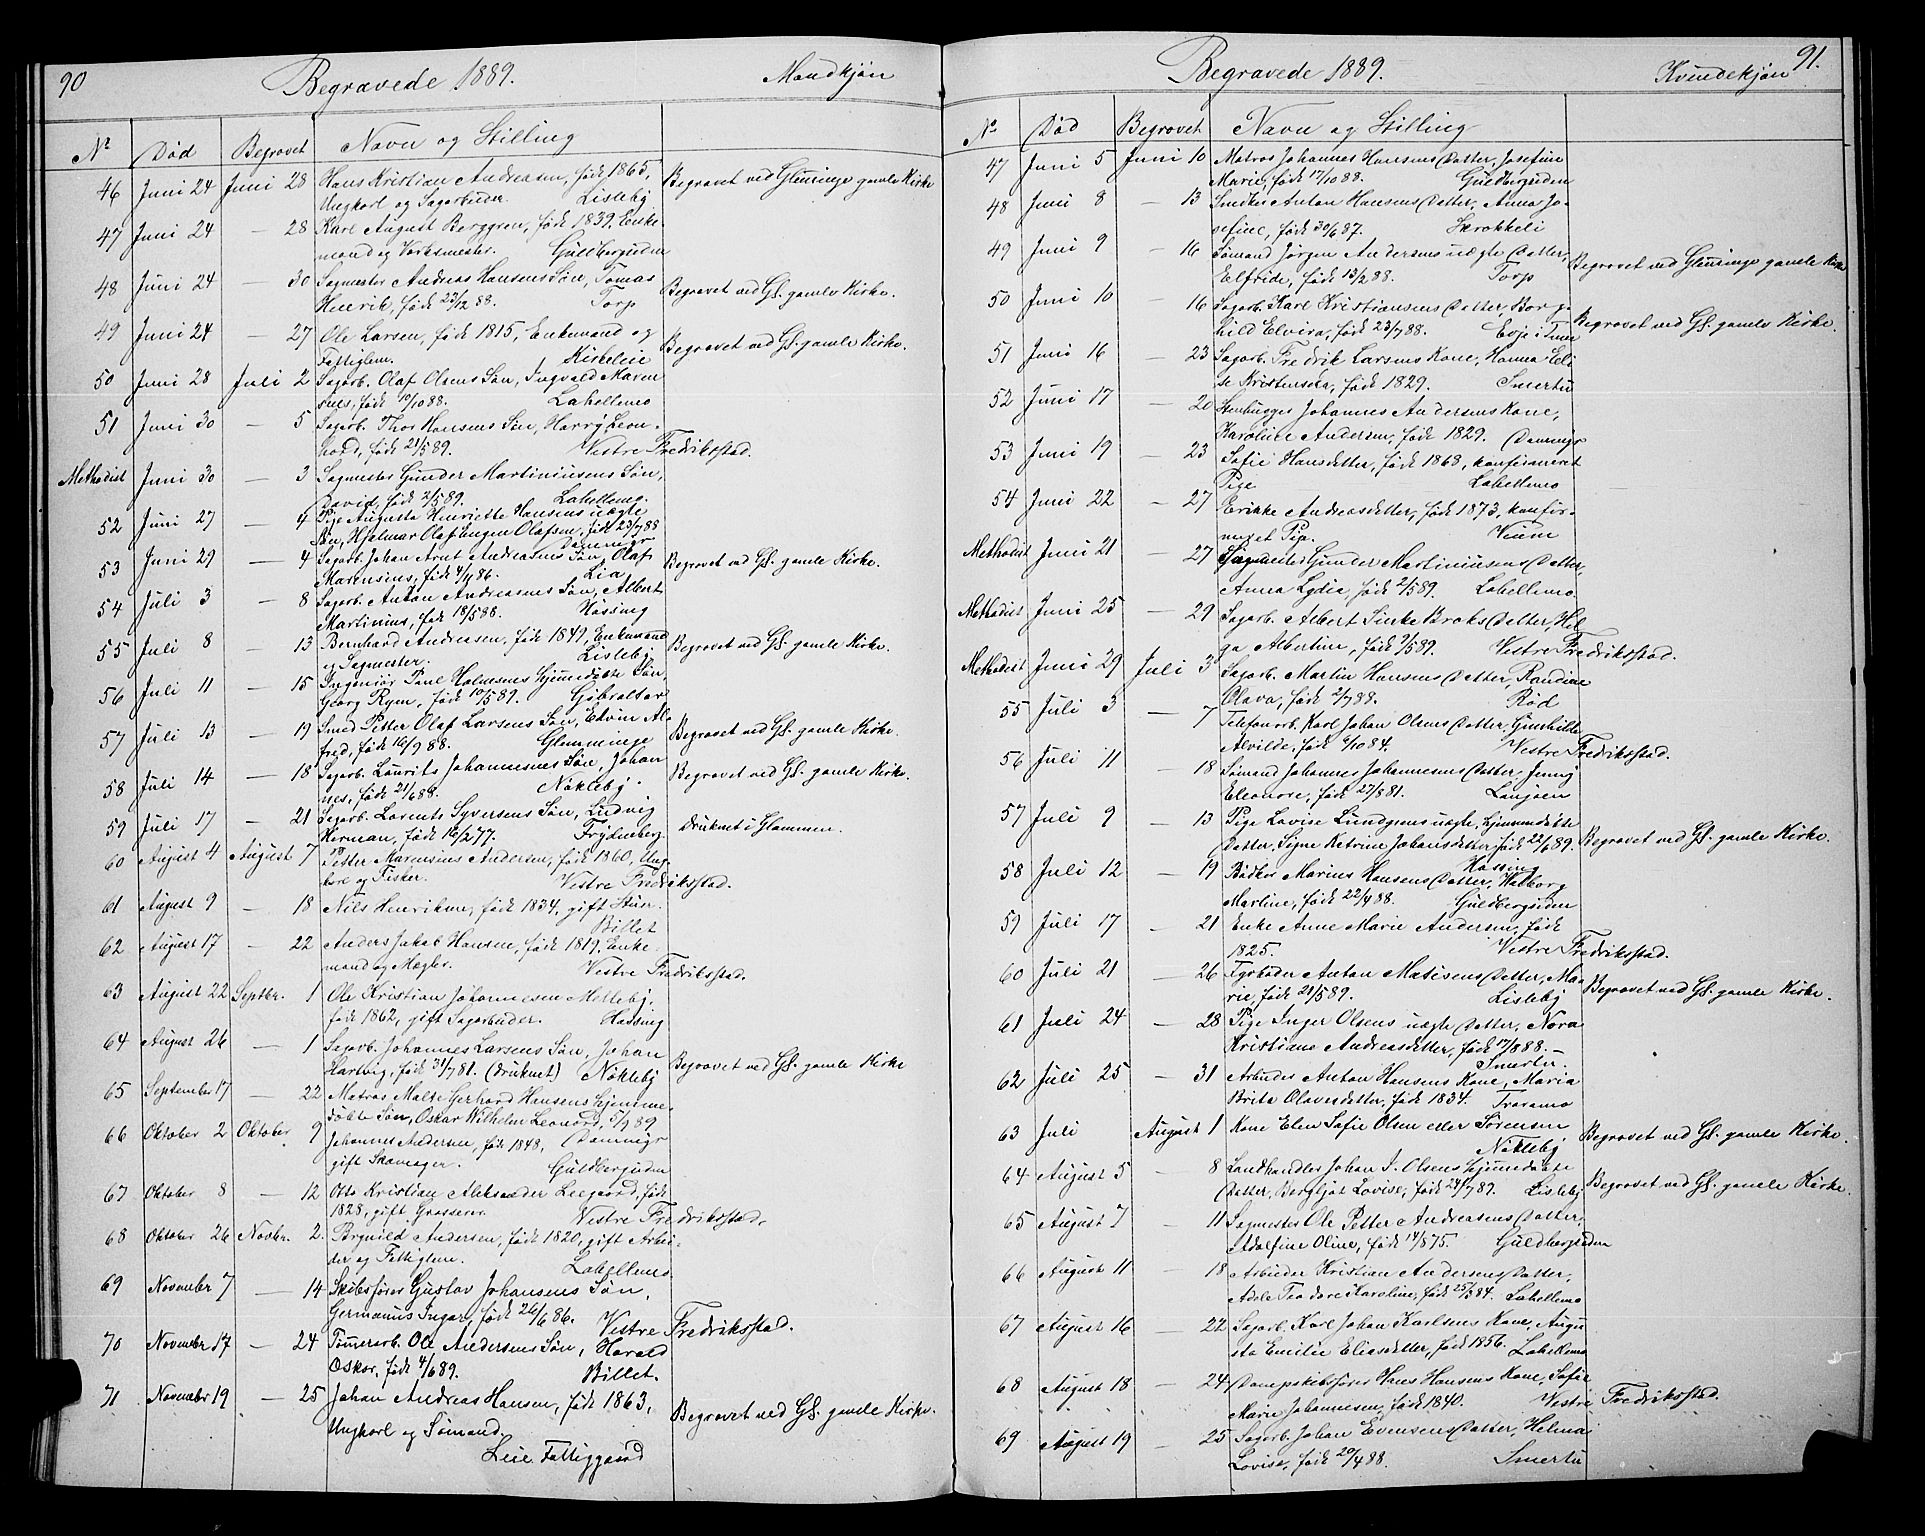 90 Begravede 1889. Mandkjøn
No Død Begravet Navn og Stilling
46 Juni 24 Juni 28 Hans Kristian Andreasen, født 1865, Begravet ved Glemminge gamle Kirke
Ungkarl og Sagarbeider. Lisleby
47 Juni 24 — 28 Karl August Berggren, født 1839, Enke-
mand og Værksmester. Guldbergsiden
48 Juni 24 — 30 Sagmester Andreas Hansens Søn, Tomas Begravet ved Gl. gamle Kirke.
Henrik, født 23/2 88. Torp
49 Juni 24 — 27 Ole Larsen, født 1815, Enkemand og Begravet ved Gl. gamle Kirke.
Fattiglem. Kirkeleie
50 Juni 28 Juli 2 Sagarb. Olaf Olsens Søn, Ingvald Maren
sius, født 19/10 88. Lahellemo
51 Juni 30 — 5 Sagarb. Thor Hansens Søn, Harry Leon-
hard, født 21/5 89. Vestre Fredriksstad.
Methodist Juni 30 — 3 Sagmester Gunder Martiniusens Søn,
David, født 2/5 89. Lahellemo.
52 Juni 27 — 4 Pige Augusta Henriette Hansens uægte
Søn, Hjalmar Olaf Eugen Olafsen, født 23/7 88
Dammyr
53 Juni 29 — 4 Sagarb. Johan Arnt Andreasens Søn, Olaf Begravet ved Gl. gamle Kirke.
Marensius, født 4/11 86. Lia
54 Juli 3 — 8 Sagarb. Anton Andreasens Søn, Albert
Martinius, født 18/5 88. Hassing
55 Juli 8 — 13 Bernhard Andreasen, født 1849, Enkemand Begravet ved Gl. gamle Kirke.
og Sagmester. Lisleby
56 Juli 11 — 15 Ingeniør Paul Holmsens hjemmedøbte Søn,
Georg Rym, født 10/5 89. Gibraltar
57 Juli 13 — 19 Smed Petter Olaf Larsens Søn, Edvin Al- Begravet ved Gl. gamle Kirke.
fred, født 16/9 88. Glemminge
58 Juli 14 — 18 Sagarb. Laurits Johannesens Søn, Johan Begravet ved Gl. gamle Kirke.
nes, født 21/6 88. Nøkleby.
59 Juli 17 — 21 Sagarb. Lorents Syversens Søn, Ludvig druknet i Glommen.
Herman, født 16/2 77. Frydenberg.
60 August 4 August 7 Petter Marensius Andersen, født 1860, Ung-
karl og Fisker. Vestre Fredriksstad.
61 August 9 — 18 Nils Henriksen, født 1834, gift Stur.
Billet
62 August 17 — 22 Anders Jakob Hansen, født 1819, Enke-
mand og Mægler. Vestre Fredriksstad.
63 August 22 Septbr. 1 Ole Kristian Johannesen Melleby,
født 1862, gift Sagarbeider. Hassing
64 August 26 — 1 Sagarb. Johannes Larsens Søn, Johan Begravet ved Gl. gamle Kirke
Hartvig, født 31/7 81. (druknet) Nøkleby
65 September 17 — 22 Matros Malte Gerhard Hansens hjemme-
døbte Søn, Oskar Wilhelm Leonard, 5/9 89
Dammyr
66 Oktober 2 Oktober 9 Johannes Andersen, født 1848,
gift Skomager. Guldbergsiden
67 Oktober 8 — 12 Otto Kristian Aleksander Leegaard, født
1828, gift Grosserer. Vestre Fredriksstad.
68 Oktober 26 Novbr. 2. Brynild Andersen, født 1820, gift Arbei-
der og Fattiglem. Lahellemo
69 November 7 — 14 Skibsfører Gustav Johansens Søn,
Germanus Ingar, født 26/6 86. Vestre Fredriksstad.
70 November 17 — 24 Tømmerarb. Ole Andersens Søn, Harald
Oskar, født 4/6 89. Billet.
71 November 19 — 25 Johan Andreas Hansen, født 1863, Begravet ved Gl. gamle Kirke.
Ungkarl og Sømand.
Leie Fattiggaard
Begravede 1889. Kvindekjøn 91.
No Død Begravet Navn og Stilling
47 Juni 5 Juni 10 Matros Johannes Hansens Datter, Josefine
Marie, født 17/10 88. Guldbergsiden
48 Juni 8 — 13 Snedker Anton Hansens Datter, Anna Jo-
sefine, født 30/6 87. Skrokkeli
49 Juni 9 — 16 Sømand Jørgen Andersens uægte Datter, Begravet ved Glemminge gamle Kirke
Elfride, født 13/2 88. Torp
50 Juni 10 — 16 Sagarb. Karl Kristiansens Datter, Borg- Begravet ved Gl. gamle Kirke.
hild Elvira, født 23/7 88. Evje i Tune
51 Juni 16 — 23 Sagarb. Fredrik Larsens Kone, Hanna Eli
se Kristensdtr, født 1829. Smertu
52 Juni 17 — 20 Stenhugger Johannes Andersens Kone,
Karoline Andersen, født 1829. Dammyr
53 Juni 19 — 23 Sofie Hansdatter, født 1868, konfirmeret
Pige Lahellemo
54 Juni 22 — 27 Erikke Andreasdatter, født 1873, konfir-
meret Pige. Veum
Methodist Juni 21 — 27 Sagmester Gunder Martiniusens Datter,
Anna Lydia, født 2/5 89. Lahellemo
Methodist Juni 25 — 29 Sagarb. Albert Sinke Broks Datter, Hel
ga Albertine, født 9/5 89. Vestre Fredriksstad.
Methodist Juni 29 Juli 3 Sagarb. Martin Hansens Datter, Randine
Olava, født 2/7 88. Rød
55 Juli 3 — 7 Telefonarb. Karl Johan Olsens Datter, Gunhilda
Alvilde, født 6/10 84. Vestre Fredriksstad.
56 Juli 11 — 18 Sømand Johannes Johannesens Datter, Jenny
Eleonore, født 27/8 81. Lunjoen
57 Juli 9 — 13 Pige Lovise Lundgrens uægte, hjemmedøbte Begravet ved Gl. gamle Kirke.
Datter, Signe Katrine Johansdatter, født 22/6 89.
Hassing
58 Juli 12 — 19 Bødker Marius Hansens Datter, Walborg
Martine, født 22/4 88. Guldbergsiden
59 Juli 17 — 21 Enke Anne Marie Andersen, født
1825. Vestre Fredriksstad.
60 Juli 21 — 26 Fyrbøder Anton Matisens Datter, Ma- Begravet ved Gl. gamle Kirke.
rie, født 21/5 89. Lisleby
61 Juli 24 — 28 Pige Inger Olsens uægte Datter, Nora
Kristiane Andreasdatter, født 17/8 88.
Smertu.
62 Juli 25 — 31 Arbeider Anton Hansens Kone, Maria
Brita Olavesdatter, født 1834. Traramo
63 Juli August 1 Kone Elen Sofie Olsen eller Sørensen Begravet ved Gl. gamle Kirke.
Nøkleby
64 August 5 — 8 Landhandler Johan J. Olsens hjemmedøbte Begravet ved Gl. gamle Kirke.
Datter, Bergljot Lovise, født 24/7 89. Lisleby
65 August 7 — 11 Sagmester Ole Petter Andreasens Datter,
Adolfine Oline, født 14/8 75. Guldbergsiden
66 August 11 — 18 Arbeider Kristian Andersens Datter,
Adele Teodore Karoline, født 25/3 84. Lahellemo
67 August 16 — 22 Sagarb. Karl Johan Karlsens Kone, Augu
sta Emilie Eliasdatter, født 1856. Lahellemo
68 August 18 — 24 Dampskibsfører Hans Hansens Kone, Sofie
Marie Johannesen, født 1840. Vestre Fredriksstad.
69 August 19 — 25 Sagarb. Johan Evensens Datter, Helma
Lovise, født 20/4 88. Smertu